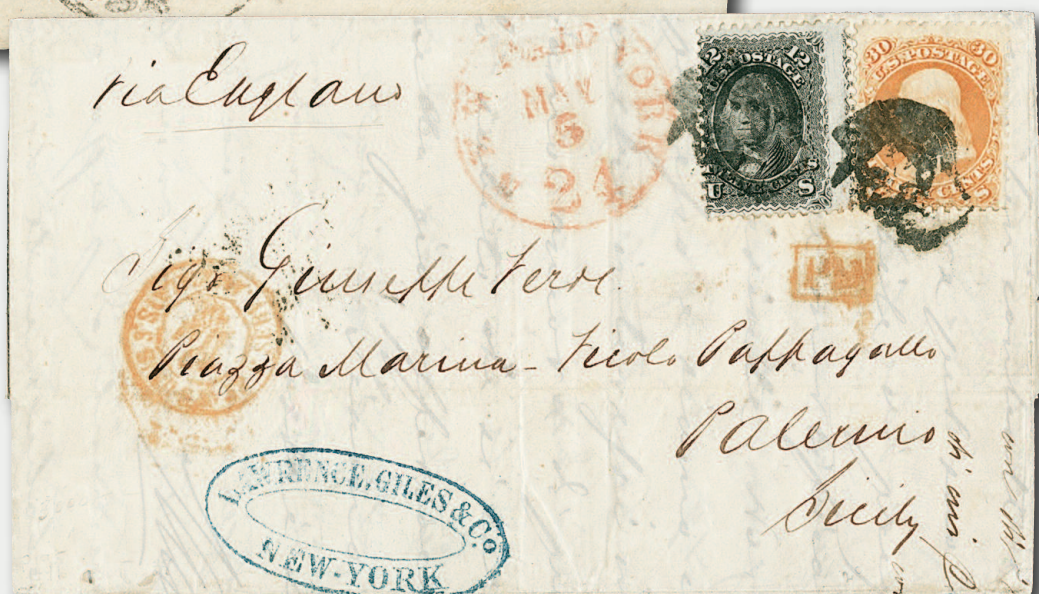 via England
NEW YORK
PAID
MAY
6
24
12 12
U.S. POSTAGE
TWELVE CENTS
U S
30 30
U.S. POSTAGE
CENTS
S
PD
Sigr Giuseppe Verde
Piazza Marina - Vicolo Pappagallo
Palermo
Sicily
LAWRENCE, GILES & Co.
NEW-YORK